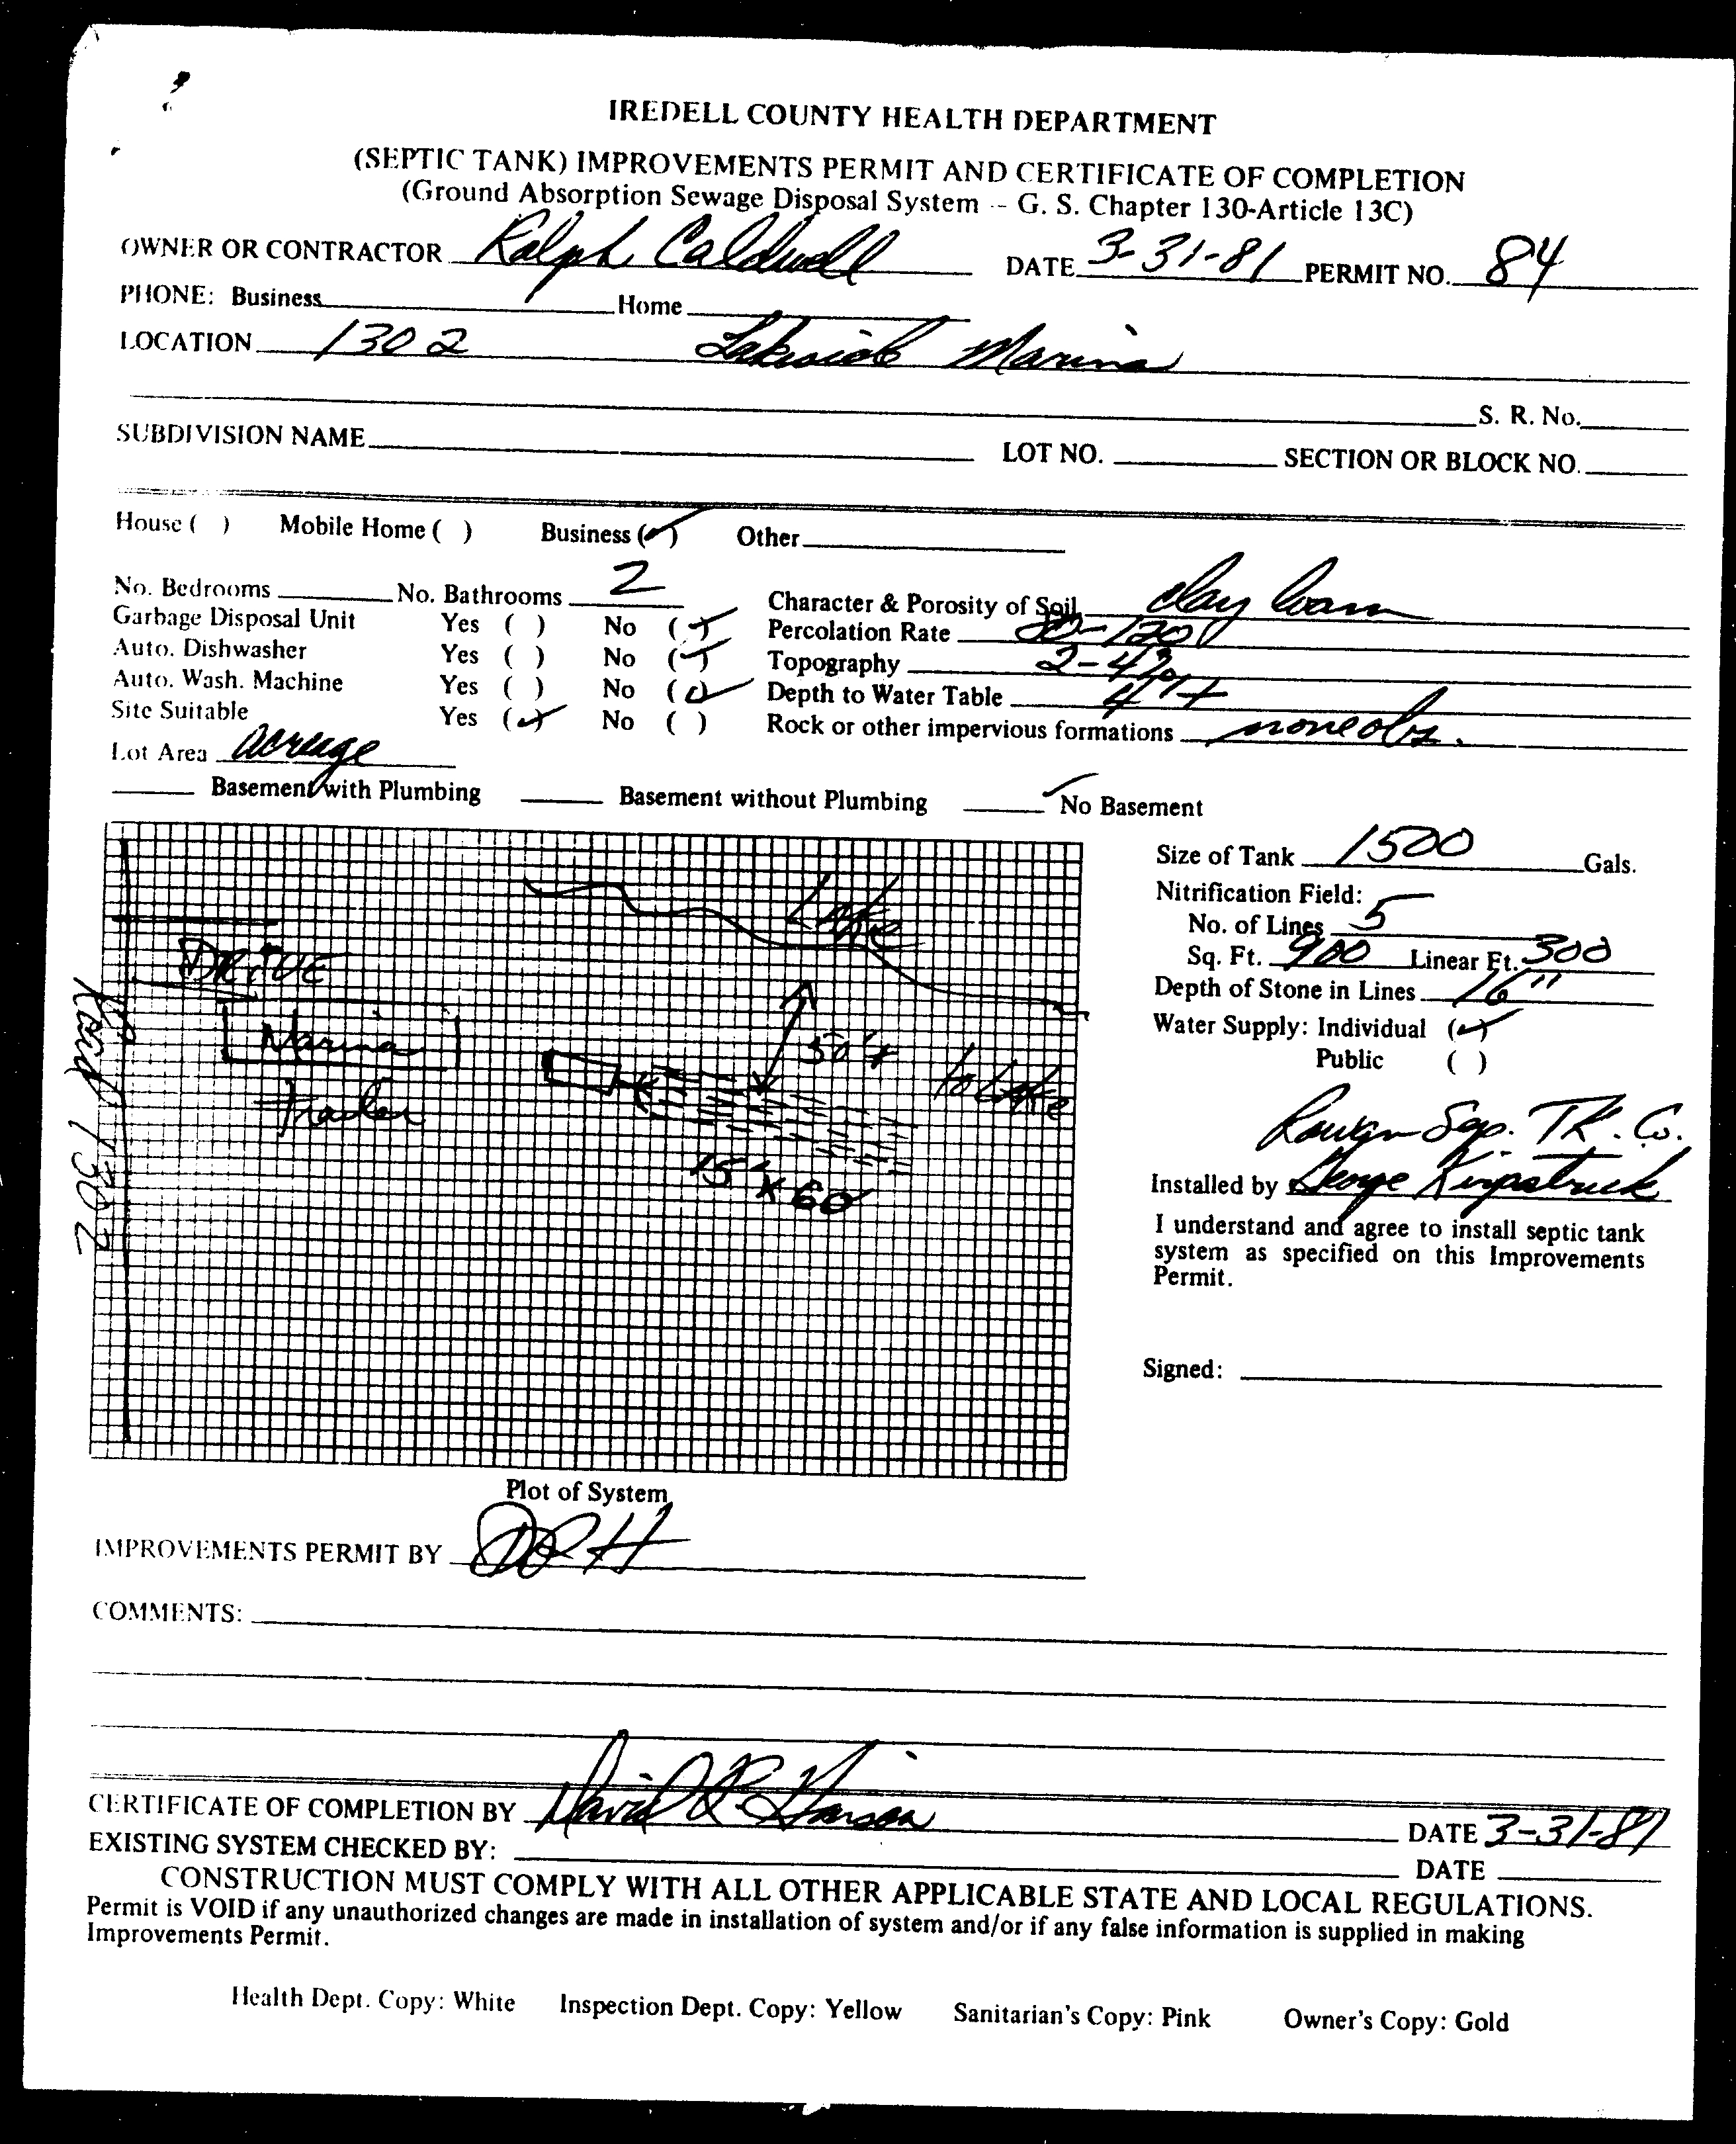 IREDELL COUNTY HEALTH DEPARTMENT
(SEPTIC TANK) IMPROVEMENTS PERMIT AND CERTIFICATE OF COMPLETION
(Ground Absorption Sewage Disposal System -- G. S. Chapter 130-Article 13C)
OWNER OR CONTRACTOR Ralph Caldwell DATE 3-31-81 PERMIT NO. 84
PHONE: Business Home
LOCATION 1302 Lakeside Marina
S. R. No.
SUBDIVISION NAME LOT NO. SECTION OR BLOCK NO.
House ( ) Mobile Home ( ) Business (✓) Other
No. Bedrooms No. Bathrooms 2 Character & Porosity of Soil clay loam
Garbage Disposal Unit Yes ( ) No (✓) Percolation Rate 80-120
Auto. Dishwasher Yes ( ) No (✓) Topography 2-4%
Auto. Wash. Machine Yes ( ) No (✓) Depth to Water Table 4'+
Site Suitable Yes (✓) No ( ) Rock or other impervious formations none obs.
Lot Area acreage
Basement with Plumbing Basement without Plumbing ✓ No Basement
Lake
DRIVE
Marina
50'+
to Lake
Trailer
15' x 60
Road 1302
Size of Tank 1500 Gals.
Nitrification Field:
No. of Lines 5
Sq. Ft. 900 Linear Ft. 300
Depth of Stone in Lines 16"
Water Supply: Individual (✓)
Public ( )
Rowan Sep. TK. Co.
Installed by George Kirpatrick
I understand and agree to install septic tank
system as specified on this Improvements
Permit.
Signed:
Plot of System
IMPROVEMENTS PERMIT BY DRH
COMMENTS:
CERTIFICATE OF COMPLETION BY David R. Hanson DATE 3-31-81
EXISTING SYSTEM CHECKED BY: DATE
CONSTRUCTION MUST COMPLY WITH ALL OTHER APPLICABLE STATE AND LOCAL REGULATIONS.
Permit is VOID if any unauthorized changes are made in installation of system and/or if any false information is supplied in making
Improvements Permit.
Health Dept. Copy: White Inspection Dept. Copy: Yellow Sanitarian's Copy: Pink Owner's Copy: Gold